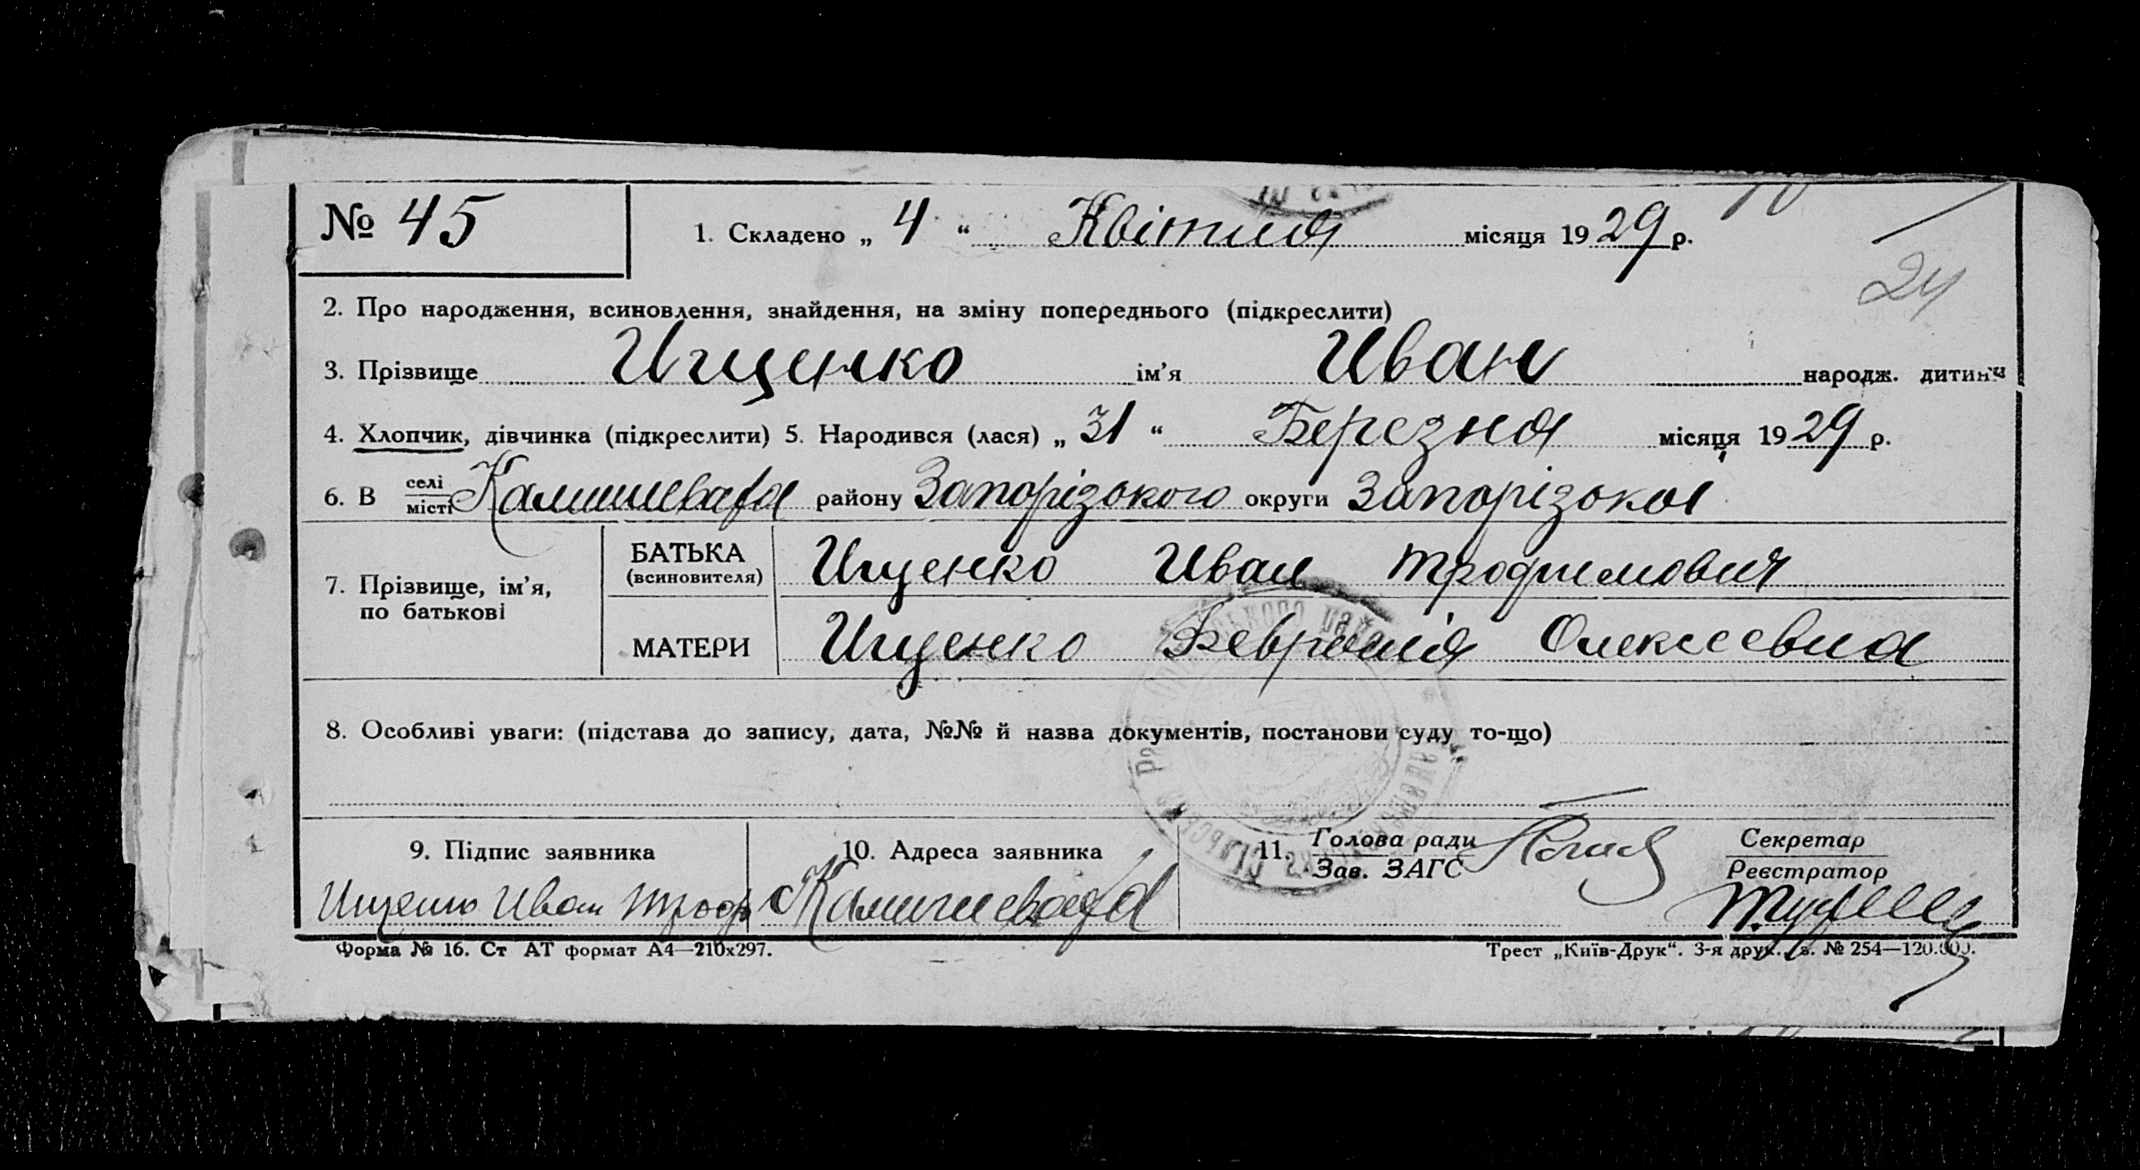 № 45 1. Складено „ 4 “ Квітня місяця 1929 р.
24
2. Про народження, всиновлення, знайдення, на зміну попереднього (підкреслити)
3. Прізвище Ищенко ім’я Иван народж. дитини
4. Хлопчик, дівчинка (підкреслити) 5. Народився (лася) „ 31 “ Березня місяця 1929 р.
6. В селі місті Камишеваха району Запорізького округи Запорізькоі
7. Прізвище, ім’я, по батькові
БАТЬКА (всиновителя) Ищенко Иван Трофимович
МАТЕРИ Ищенко Февронія Олексеевна
8. Особливі уваги: (підстава до запису, дата, №№ й назва документів, постанови суду то-що)
9. Підпис заявника 10. Адреса заявника 11. Голова ради Зав. ЗАГС Секретар Реєстратор
Ищенко Иван Троф Камишеваха
Форма № 16. Ст АТ формат А4—210х297. Трест „Київ-Друк“. 3-я друк. з. № 254—120.000.